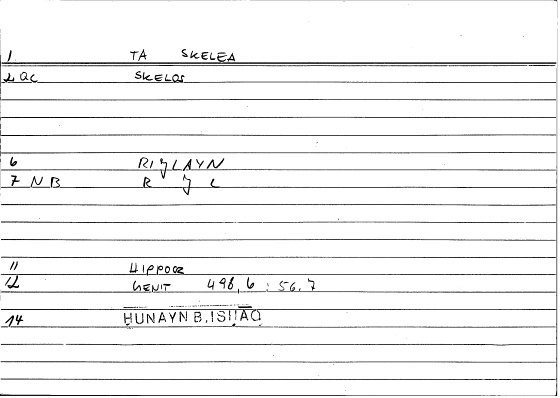 1 TA SKELEA
2 ac SKELOS
6 RIJLAYN
7 NB R J L
11 HIPPOCR
12 GENIT 498,6 : 56.7
14 HUNAYN B. ISHAQ